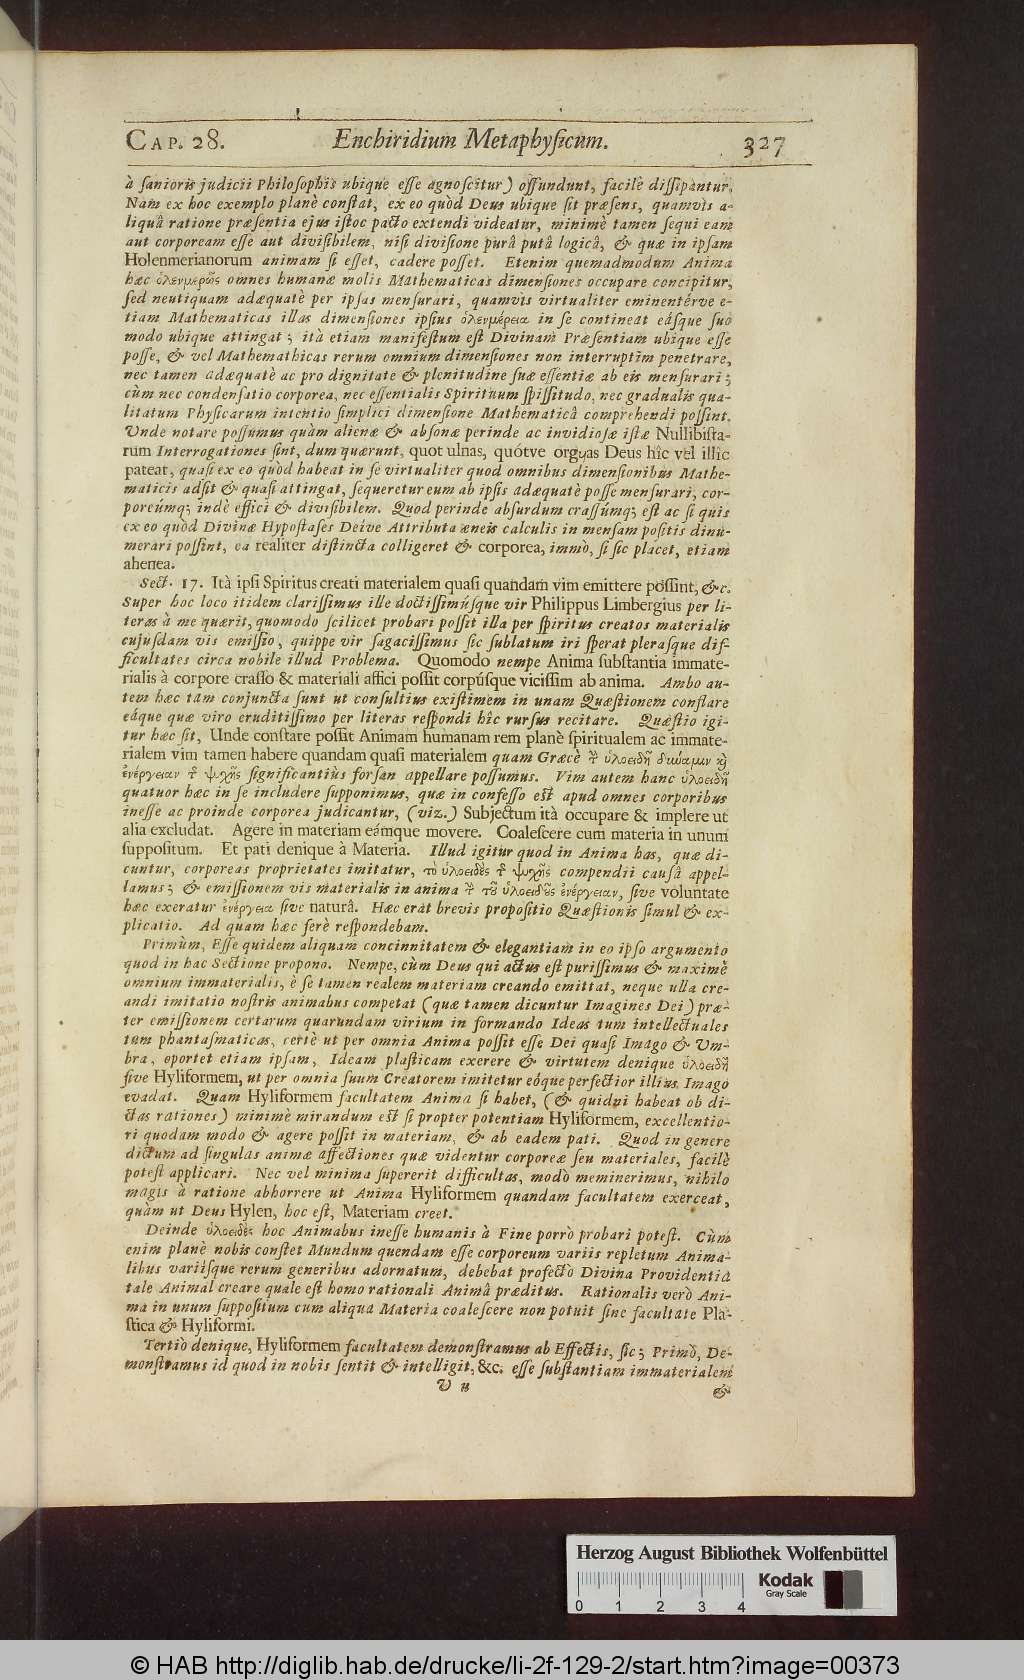 CAP. 28. Enchiridium Metaphysicum. 327
à sanioris judicii Philosophis ubique esse agnoscitur) offundunt, facilè dissipantur.
Nam ex hoc exemplo planè constat, ex eo quòd Deus ubique sit præsens, quamvìs a-
liquâ ratione præsentia ejus istoc pacto extendi videatur, minimè tamen sequi eam
aut corpoream esse aut divisibilem, nisi divisione purâ putâ logicâ, & quæ in ipsam
Holenmerianorum animam si esset, cadere posset. Etenim quemadmodum Anima
hæc ὁλενμερῶς omnes humanæ molis Mathematicas dimensiones occupare concipitur,
sed neutiquam adæquatè per ipsas mensurari, quamvìs virtualiter eminentérve e-
tiam Mathematicas illas dimensiones ipsius ὁλενμέρεια in se contineat eásque suo
modo ubique attingat; ità etiam manifestum est Divinam Præsentiam ubique esse
posse, & vel Mathemathicas rerum omnium dimensiones non interruptìm penetrare,
nec tamen adæquatè ac pro dignitate & plenitudine suæ essentiæ ab eis mensurari;
cùm nec condensatio corporea, nec essentialis Spirituum spissitudo, nec gradualis qua-
litatum Physicarum intentio simplici dimensione Mathematicâ comprehendi possint.
Unde notare possumus quàm alienæ & absonæ perinde ac invidiosæ istæ Nullibista-
rum Interrogationes sint, dum quærunt, quot ulnas, quótve orgyas Deus hîc vel illic
pateat, quasi ex eo quòd habeat in se virtualiter quod omnibus dimensionibus Mathe-
maticis adsit & quasi attingat, sequeretur eum ab ipsis adæquatè posse mensurari, cor-
poreúmq; indè effici & divisibilem. Quod perinde absurdum crassúmq; est ac si quis
ex eo quòd Divinæ Hypostases Deive Attributa æneis calculis in mensam positis dinu-
merari possint, ea realiter distincta colligeret & corporea, immò, si sic placet, etiam
ahenea.
Sect. 17. Ità ipsi Spiritus creati materialem quasi quandam vim emittere possint, &c.
Super hoc loco itidem clarissimus ille doctissimúsque vir Philippus Limbergius per li-
teras à me quærit, quomodo scilicet probari possit illa per spiritus creatos materialis
cujusdam vis emissio, quippe vir sagacissimus sic sublatum iri sperat plerasque dif-
ficultates circa nobile illud Problema. Quomodo nempe Anima substantia immate-
rialis à corpore crasso & materiali affici possit corpúsque vicissim ab anima. Ambo au-
tem hæc tam conjuncta sunt ut consultius existimem in unam Quæstionem conflare
eáque quæ viro eruditissimo per literas respondi hîc rursus recitare. Quæstio igi-
tur hæc sit, Unde constare possit Animam humanam rem planè spiritualem ac immate-
rialem vim tamen habere quandam quasi materialem quam Græcè τὴν ὑλοειδῆ δύναμιν καὶ
ἐνέργειαν τῆς ψυχῆς significantiùs forsan appellare possumus. Vim autem hanc ὑλοειδῆ
quatuor hæc in se includere supponimus, quæ in confesso est apud omnes corporibus
inesse ac proinde corporea judicantur, (viz.) Subjectum ità occupare & implere ut
alia excludat. Agere in materiam eámque movere. Coalescere cum materia in unum
suppositum. Et pati denique à Materia. Illud igitur quod in Anima has, quæ di-
cuntur, corporeas proprietates imitatur, τὸ ὑλοειδὲς τῆς ψυχῆς compendii causâ appel-
lamus; & emissionem vis materialis in anima τὴν τοῦ ὑλοειδοῦς ἐνέργειαν, sive voluntate
hæc exeratur ἐνέργεια sive naturâ. Hæc erat brevis propositio Quæstionis simul & ex-
plicatio. Ad quam hæc ferè respondebam.
Primùm, Esse quidem aliquam concinnitatem & elegantiam in eo ipso argumento
quod in hac Sectione propono. Nempe, cùm Deus qui actus est purissimus & maximè
omnium immaterialis, è se tamen realem materiam creando emittat, neque ulla cre-
andi imitatio nostris animabus competat (quæ tamen dicuntur Imagines Dei) præ-
ter emissionem certarum quarundam virium in formando Ideas tum intellectuales
tum phantasmaticas, certè ut per omnia Anima possit esse Dei quasi Imago & Um-
bra, oportet etiam ipsam, Ideam plasticam exerere & virtutem denique ὑλοειδῆ
sive Hyliformem, ut per omnia suum Creatorem imitetur eóque perfectior illius Imago
evadat. Quam Hyliformem facultatem Anima si habet, (& quidni habeat ob di-
ctas rationes) minimè mirandum est si propter potentiam Hyliformem, excellentio-
ri quodam modo & agere possit in materiam, & ab eadem pati. Quod in genere
dictum ad singulas animæ affectiones quæ videntur corporeæ seu materiales, facilè
potest applicari. Nec vel minima supererit difficultas, modò meminerimus, nihilo
magis à ratione abhorrere ut Anima Hyliformem quandam facultatem exerceat,
quàm ut Deus Hylen, hoc est, Materiam creet.
Deinde ὑλοειδὲς hoc Animabus inesse humanis à Fine porrò probari potest. Cùm
enim planè nobis constet Mundum quendam esse corporeum variis repletum Anima-
libus variisque rerum generibus adornatum, debebat profectò Divina Providentia
tale Animal creare quale est homo rationali Animâ præditus. Rationalis verò Ani-
ma in unum suppositum cum aliqua Materia coalescere non potuit sine facultate Pla-
stica & Hyliformi.
Tertiò denique, Hyliformem facultatem demonstramus ab Effectis, sic; Primò, De-
monstramus id quod in nobis sentit & intelligit, &c. esse substantiam immaterialem
U u &
Herzog August Bibliothek Wolfenbüttel
0 1 2 3 4
Kodak
Gray Scale
© HAB http://diglib.hab.de/drucke/li-2f-129-2/start.htm?image=00373